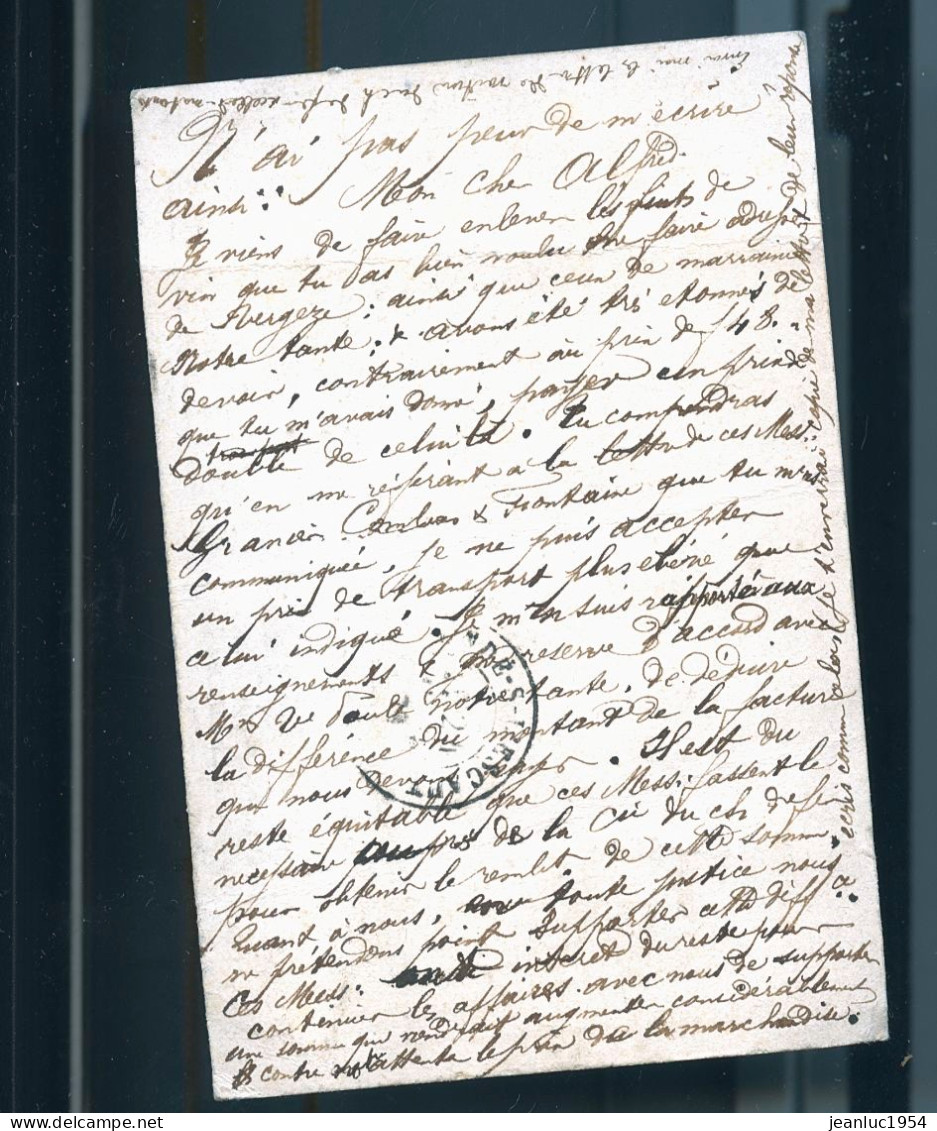 N'ai pas peur de m'écrire
ainsi: Mon cher Alfred.
Je viens de faire enlever les futs de
vin que tu as bien voulu me faire adresser
de Vergeze; ainsi que ceux de marraine
Notre tante; & avons été très etonnés de
devoir, contrairement au prix de f 48.
que tu m'avais donné, payer un prix de
transport
double de celui là. Tu comprendras
qu'en me réferant à la lettre de ces Mess.
Granier Combes & Fontaine que tu m'as
communiquée, je ne puis accepter
un prix de transport plus élévé que
celui indiqué. Je m'en suis rapporté aux
renseignements & me reserve d'accord avec
Mme Ve notre tante, de déduire
la différence du montant de la facture
que nous devons. Il est du
reste équitable que ces Mess: fassent le
necessaire auprès de la Cie du ch. de fer
pour obtenir le rembt. de cette somme
Quant à nous, toute justice nous
ne prétendons point supporter cette diff ce
Ces Mess: ont intéret du reste pour
continuer les affaires avec nous de supporter
une somme qui viendrait augmenter considérablement
& contre notre attente le prix de la marchandise.
écris comme alors je t'enverrai copie de ma lettre & de leur réponse
Envoi moi la lettre de voiture
ESCAUT
delcampe.net
jeanluc1954